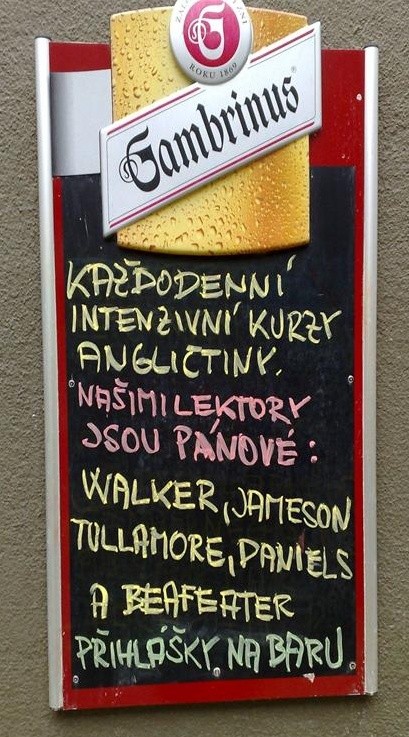 ROKU 1869
Gambrinus
KAŽDODENNÍ
INTENZIVNÍ KURZY
ANGLIČTINY.
NAŠIMI LEKTORY
JSOU PÁNOVÉ:
WALKER, JAMESON
TULLAMORE, DANIELS
A BEAFEATER
PŘIHLÁŠKY NA BARU